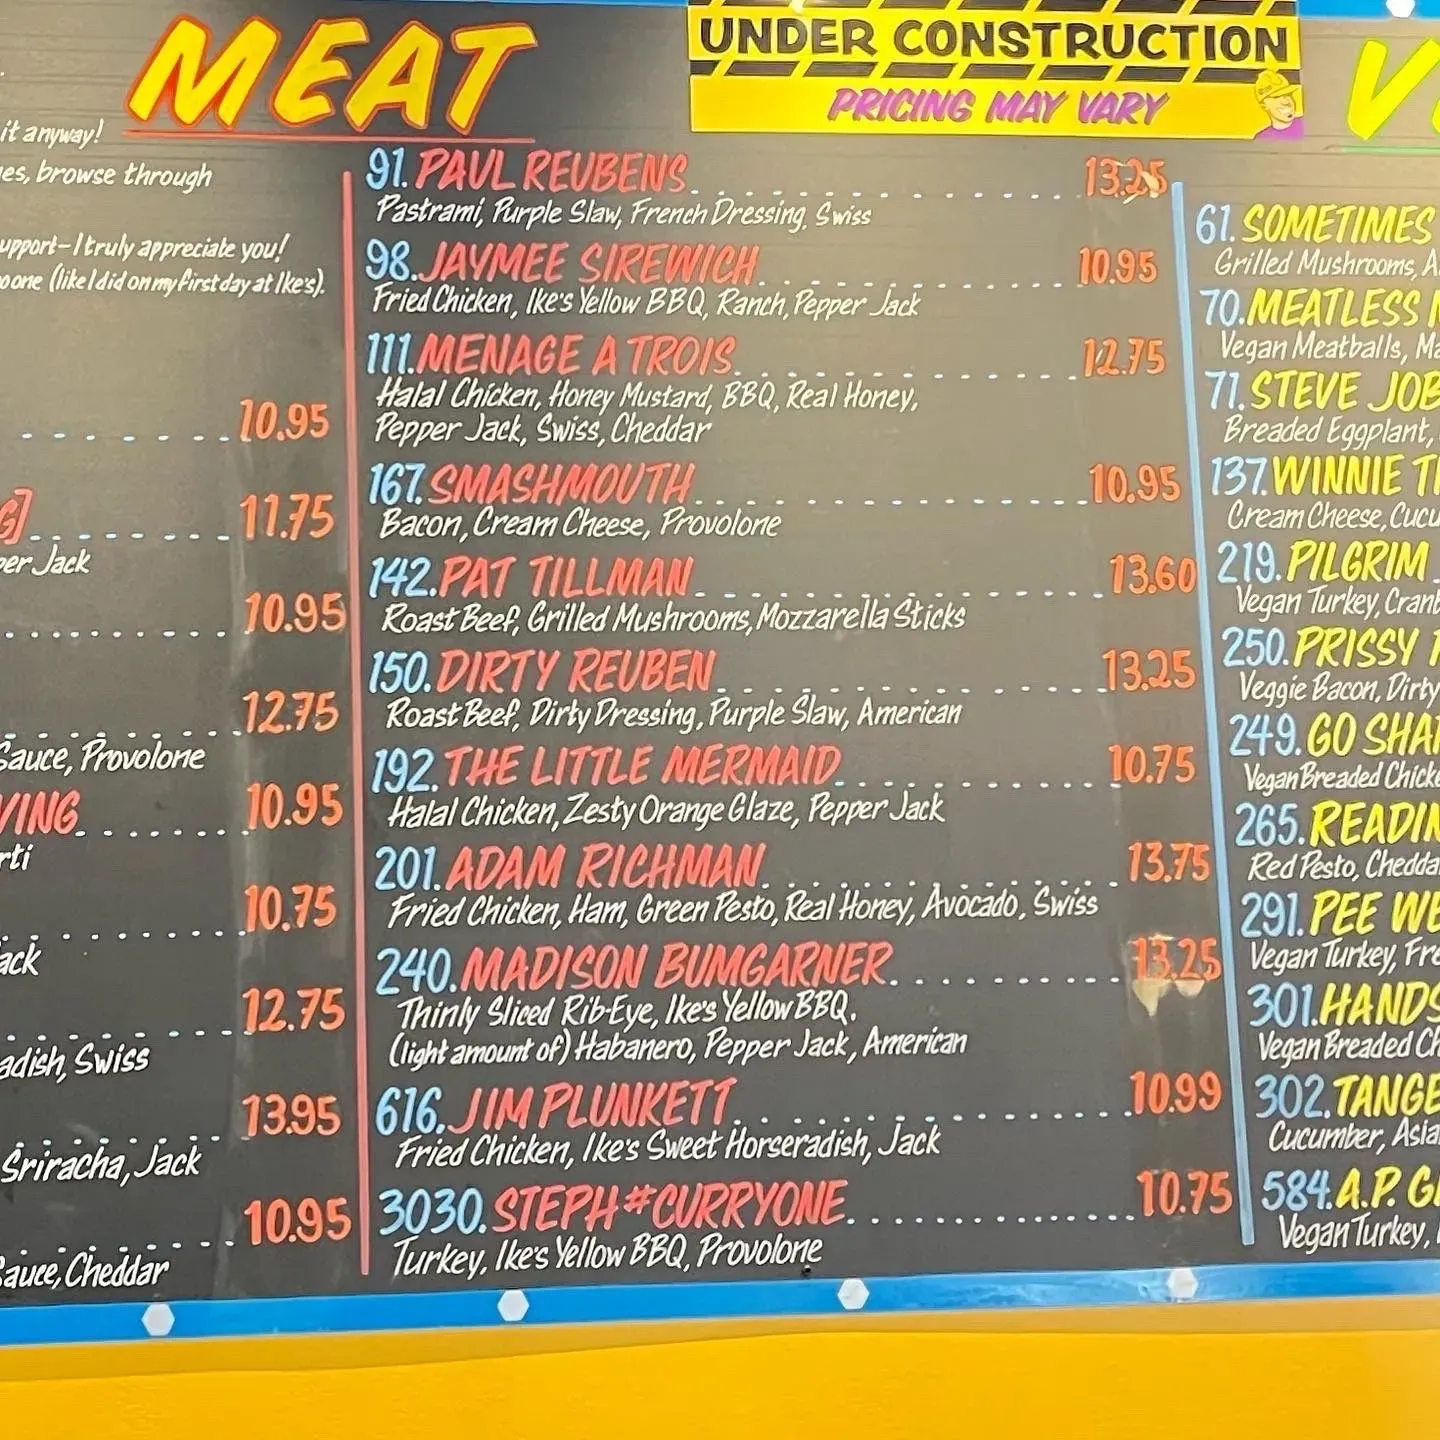 MEAT
UNDER CONSTRUCTION
PRICING MAY VARY
it anyway!
browse through
I truly appreciate you!
(like I did on my first day at Ike's).
10.95
11.75
Jack
10.95
12.75
Sauce, Provolone
10.95
10.75
12.75
Swiss
13.95
Sriracha, Jack
10.95
Cheddar
91. PAUL REUBENS 13.25
Pastrami, Purple Slaw, French Dressing, Swiss
98. JAYMEE SIREWICH 10.95
Fried Chicken, Ike's Yellow BBQ, Ranch, Pepper Jack
111. MENAGE A TROIS 12.75
Halal Chicken, Honey Mustard, BBQ, Real Honey,
Pepper Jack, Swiss, Cheddar
167. SMASHMOUTH 10.95
Bacon, Cream Cheese, Provolone
142. PAT TILLMAN 13.60
Roast Beef, Grilled Mushrooms, Mozzarella Sticks
150. DIRTY REUBEN 13.25
Roast Beef, Dirty Dressing, Purple Slaw, American
192. THE LITTLE MERMAID 10.75
Halal Chicken, Zesty Orange Glaze, Pepper Jack
201. ADAM RICHMAN 13.75
Fried Chicken, Ham, Green Pesto, Real Honey, Avocado, Swiss
240. MADISON BUMGARNER 13.25
Thinly Sliced Rib-Eye, Ike's Yellow BBQ,
(light amount of) Habanero, Pepper Jack, American
616. JIM PLUNKETT 10.99
Fried Chicken, Ike's Sweet Horseradish, Jack
3030. STEPH#CURRYONE 10.75
Turkey, Ike's Yellow BBQ, Provolone
61. SOMETIMES
Grilled Mushrooms,
70. MEATLESS
Vegan Meatballs,
71. STEVE
Breaded Eggplant,
137. WINNIE
Cream Cheese,
219. PILGRIM
Vegan Turkey,
250. PRISSY
Veggie Bacon, Dirty
249. GO
Vegan Breaded
265.
Red Pesto,
291. PEE
Vegan Turkey,
301.
Vegan Breaded
302.
Cucumber,
584. A.P.
Vegan Turkey,